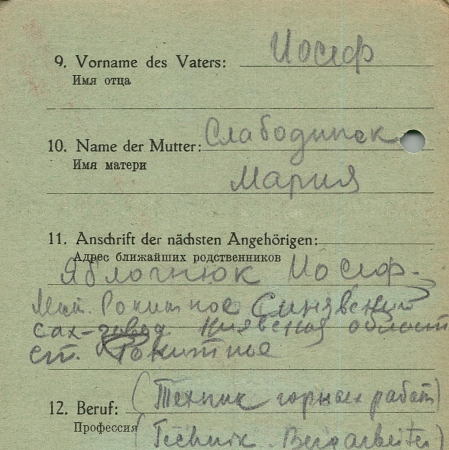 9. Vorname des Vaters: Иосеф
Имя отца
10. Name der Mutter: Слабодинск
Имя матери
Мария
11. Anschrift der nächsten Angehörigen:
Адрес ближайших родственников
Яблочнюк Иосеф-
Рокитное Синявский
сах-завод Киявская област
ст. Рокитное
12. Beruf: (Техник горных работ)
Профессия (Technik. Bergarbeiter)